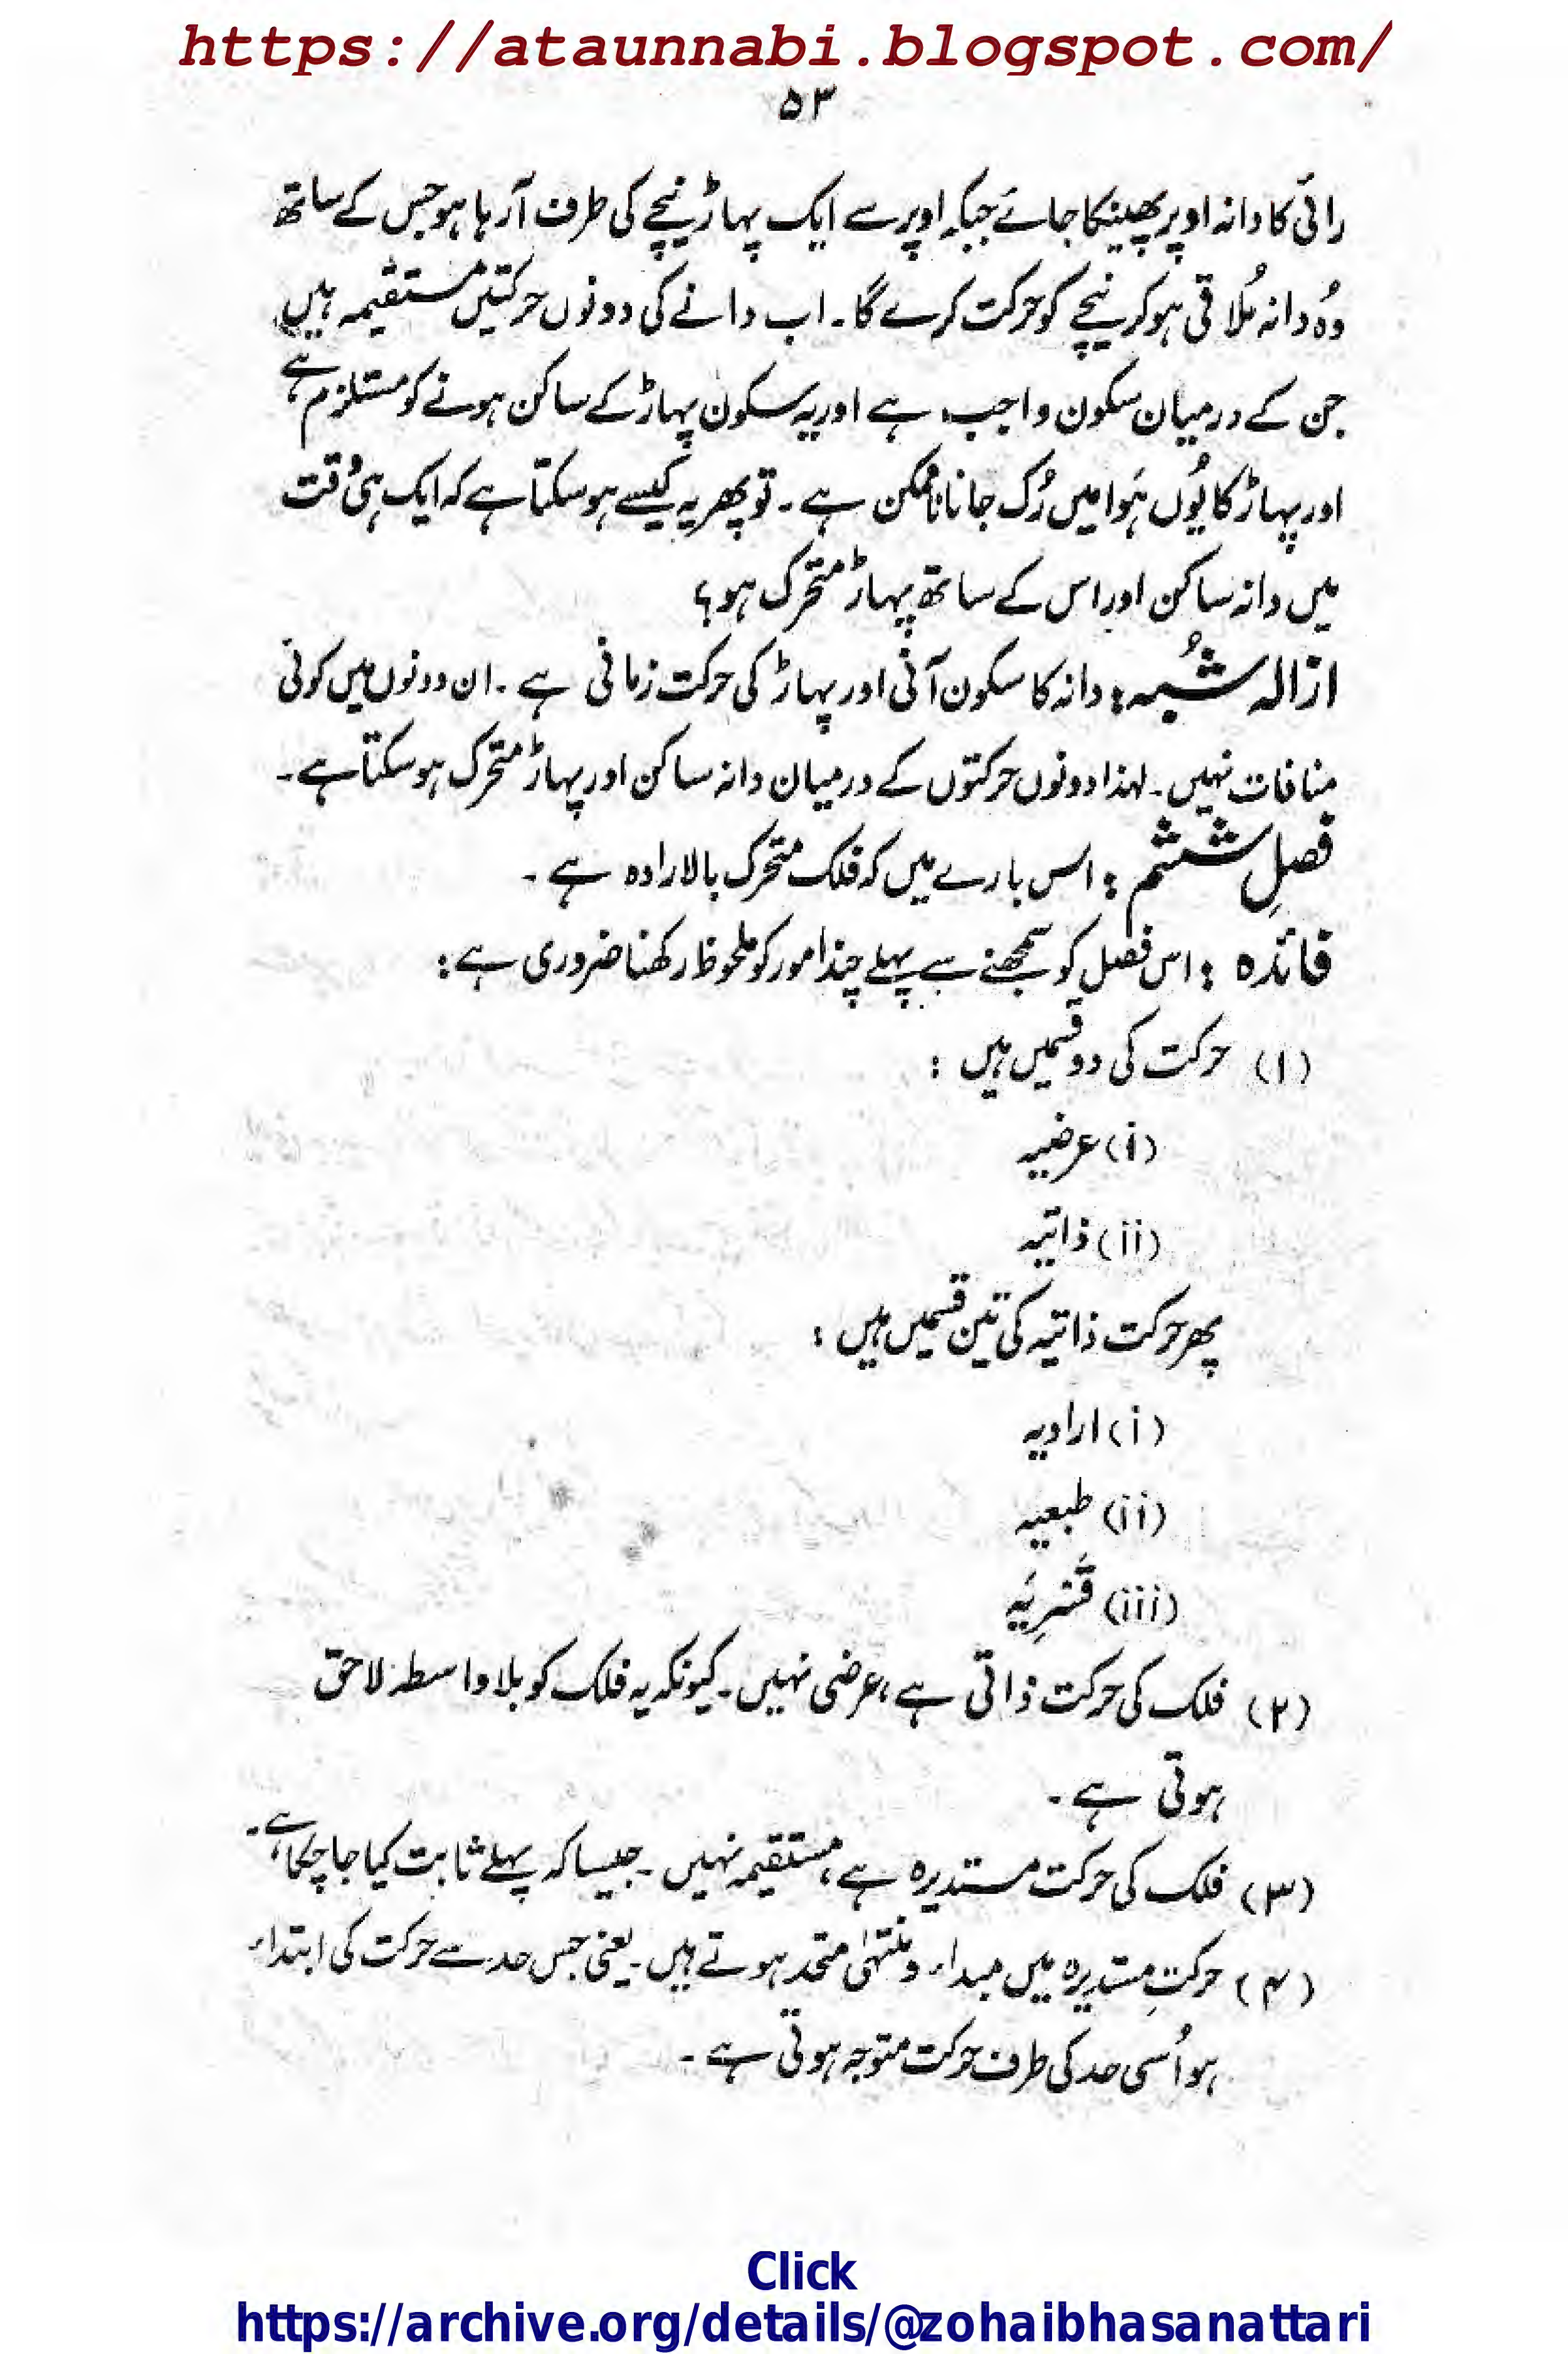 https://ataunnabi.blogspot.com/
۵۳
رائی کا دانہ اوپر پھینکا جائے جبکہ اوپر سے ایک پہاڑ نیچے کی طرف آرہا ہو جس کے ساتھ
وُہ دانہ مُلاقی ہو کر نیچے کو حرکت کرے گا۔ اب دانے کی دونوں حرکتیں مستقیمہ ہیں
جن کے درمیان سکون واجب ہے اور یہ سکون پہاڑ کے ساکن ہونے کو مستلزم ہے
اور پہاڑ کا یُوں ہَوا میں رُک جانا ناممکن ہے۔ تو پھر یہ کیسے ہو سکتا ہے کہ ایک ہی وُقت
میں دانہ ساکن اور اس کے ساتھ پہاڑ متحرک ہو؟
ازالہ شُبہ: دانہ کا سکون آنی اور پہاڑ کی حرکت زمانی ہے۔ ان دونوں میں کوئی
منافات نہیں۔ لہذا دونوں حرکتوں کے درمیان دانہ ساکن اور پہاڑ متحرک ہو سکتا ہے۔
فصلِ ششم: اس بارے میں کہ فلک متحرک بالارادہ ہے۔
فائدہ: اس فصل کو سمجھنے سے پہلے چند امور کو ملحوظ رکھنا ضروری ہے:
(۱) حرکت کی دو قسمیں ہیں:
(i) عرضیہ
(ii) ذاتیہ
پھر حرکت ذاتیہ کی تین قسمیں ہیں:
(i) ارادیہ
(ii) طبعیہ
(iii) قَسْرِیَہ
(۲) فلک کی حرکت ذاتی ہے، عرضی نہیں۔ کیونکہ یہ فلک کو بلا واسطہ لاحق
ہوتی ہے۔
(۳) فلک کی حرکت مستدیرہ ہے، مستقیمہ نہیں۔ جیسا کہ پہلے ثابت کیا جا چکا ہے۔
(۴) حرکتِ مستدیرہ میں مبداء و منتہٰی متحد ہوتے ہیں۔ یعنی جس حد سے حرکت کی ابتداء
ہو اُسی حد کی طرف حرکت متوجہ ہوتی ہے۔
Click
https://archive.org/details/@zohaibhasanattari